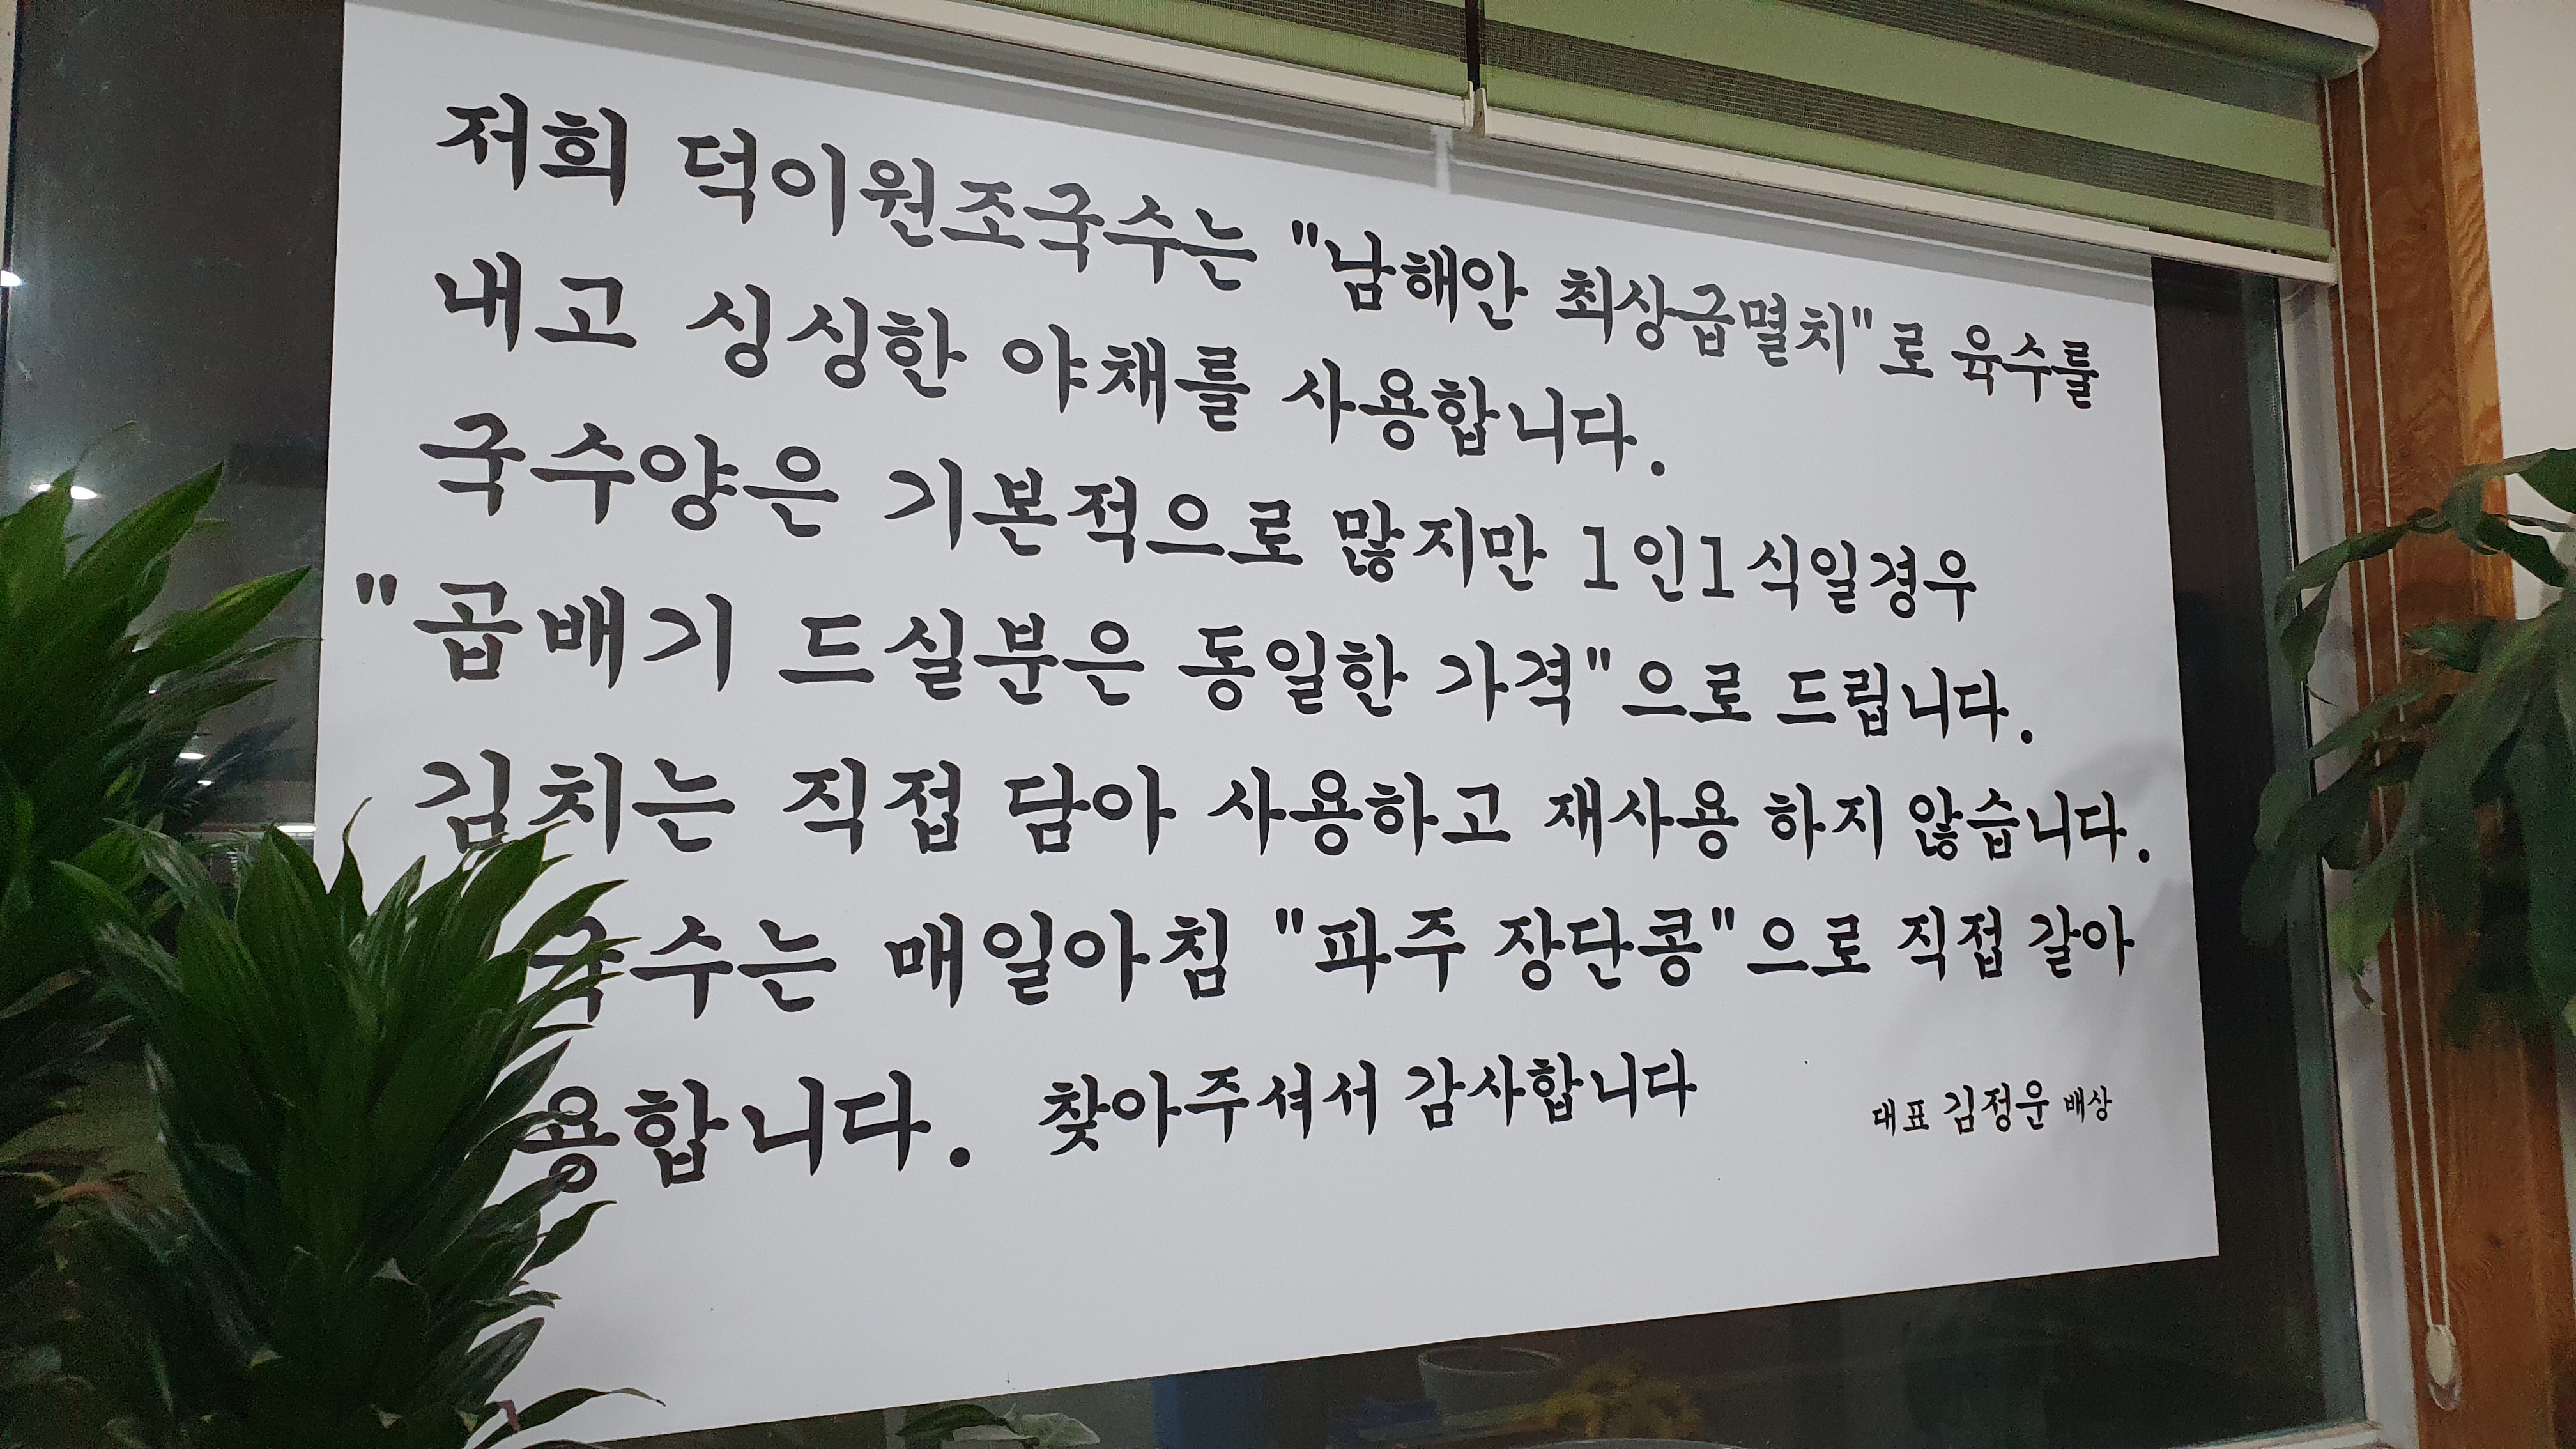 저희 덕이원조국수는 "남해안 최상급멸치"로 육수를
내고 싱싱한 야채를 사용합니다.
국수양은 기본적으로 많지만 1인1식일경우
"곱배기 드실분은 동일한 가격"으로 드립니다.
김치는 직접 담아 사용하고 재사용 하지 않습니다.
국수는 매일아침 "파주 장단콩"으로 직접 갈아
용합니다. 찾아주셔서 감사합니다
대표 김정운 배상